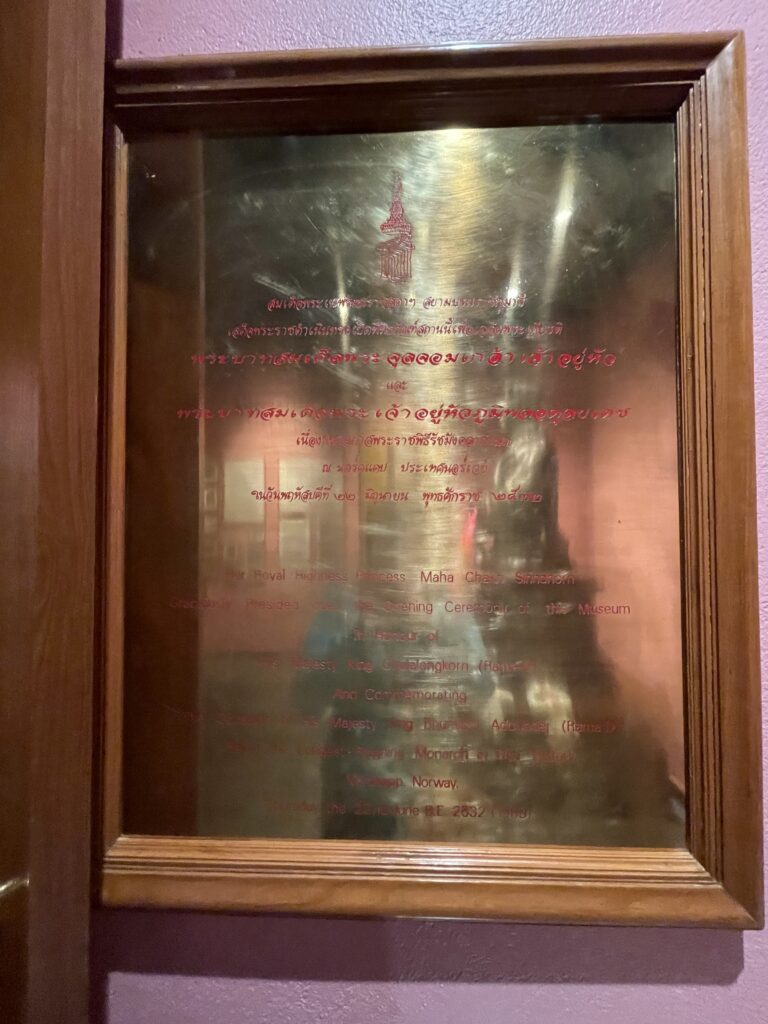 สมเด็จพระเทพรัตนราชสุดาฯ สยามบรมราชกุมารี
เสด็จพระราชดำเนินทรงเปิดพิพิธภัณฑ์สถานนี้เพื่อเฉลิมพระเกียรติ
พระบาทสมเด็จพระจุลจอมเกล้าเจ้าอยู่หัว
และ
พระบาทสมเด็จพระเจ้าอยู่หัวภูมิพลอดุลยเดช
เนื่องในพระราชพิธีรัชมังคลาภิเษก
ณ นอร์ดแคป ประเทศนอร์เวย์
ในวันพฤหัสบดีที่ ๒๒ มิถุนายน พุทธศักราช ๒๕๓๒
Her Royal Highness Princess Maha Chakri Sirindhorn
Graciously Presided over the Opening Ceremony of this Museum
In Honour of
Majesty King Chulalongkorn (Rama V)
And Commemorating
Majesty King Bhumibol Adulyadej (Rama
Longest Reigning Monarch in
Norway,
the 22nd June B.E. 2532 (1989)